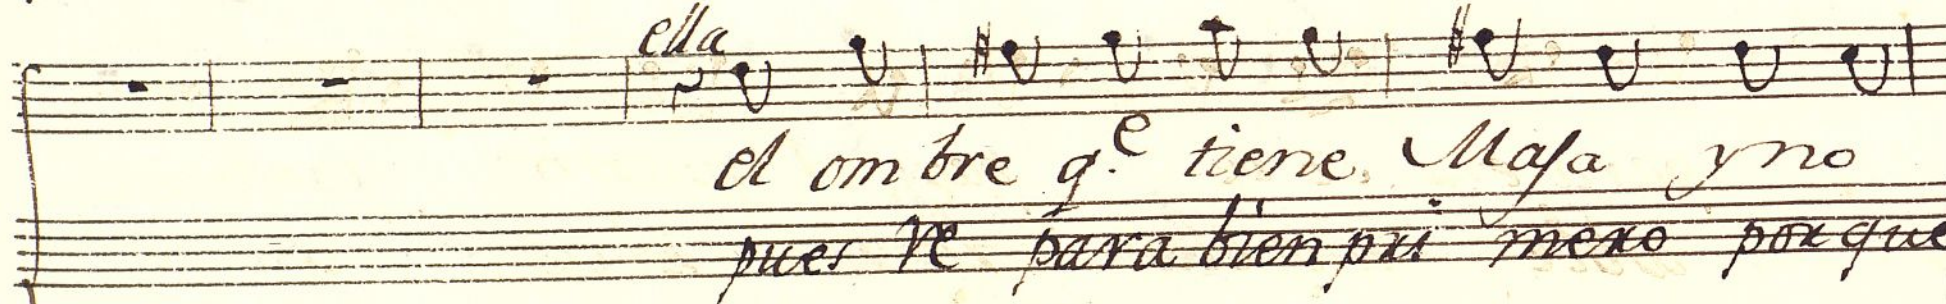 ella
el ombre q.e tiene Masa y no
pues re para bien pri mero porque